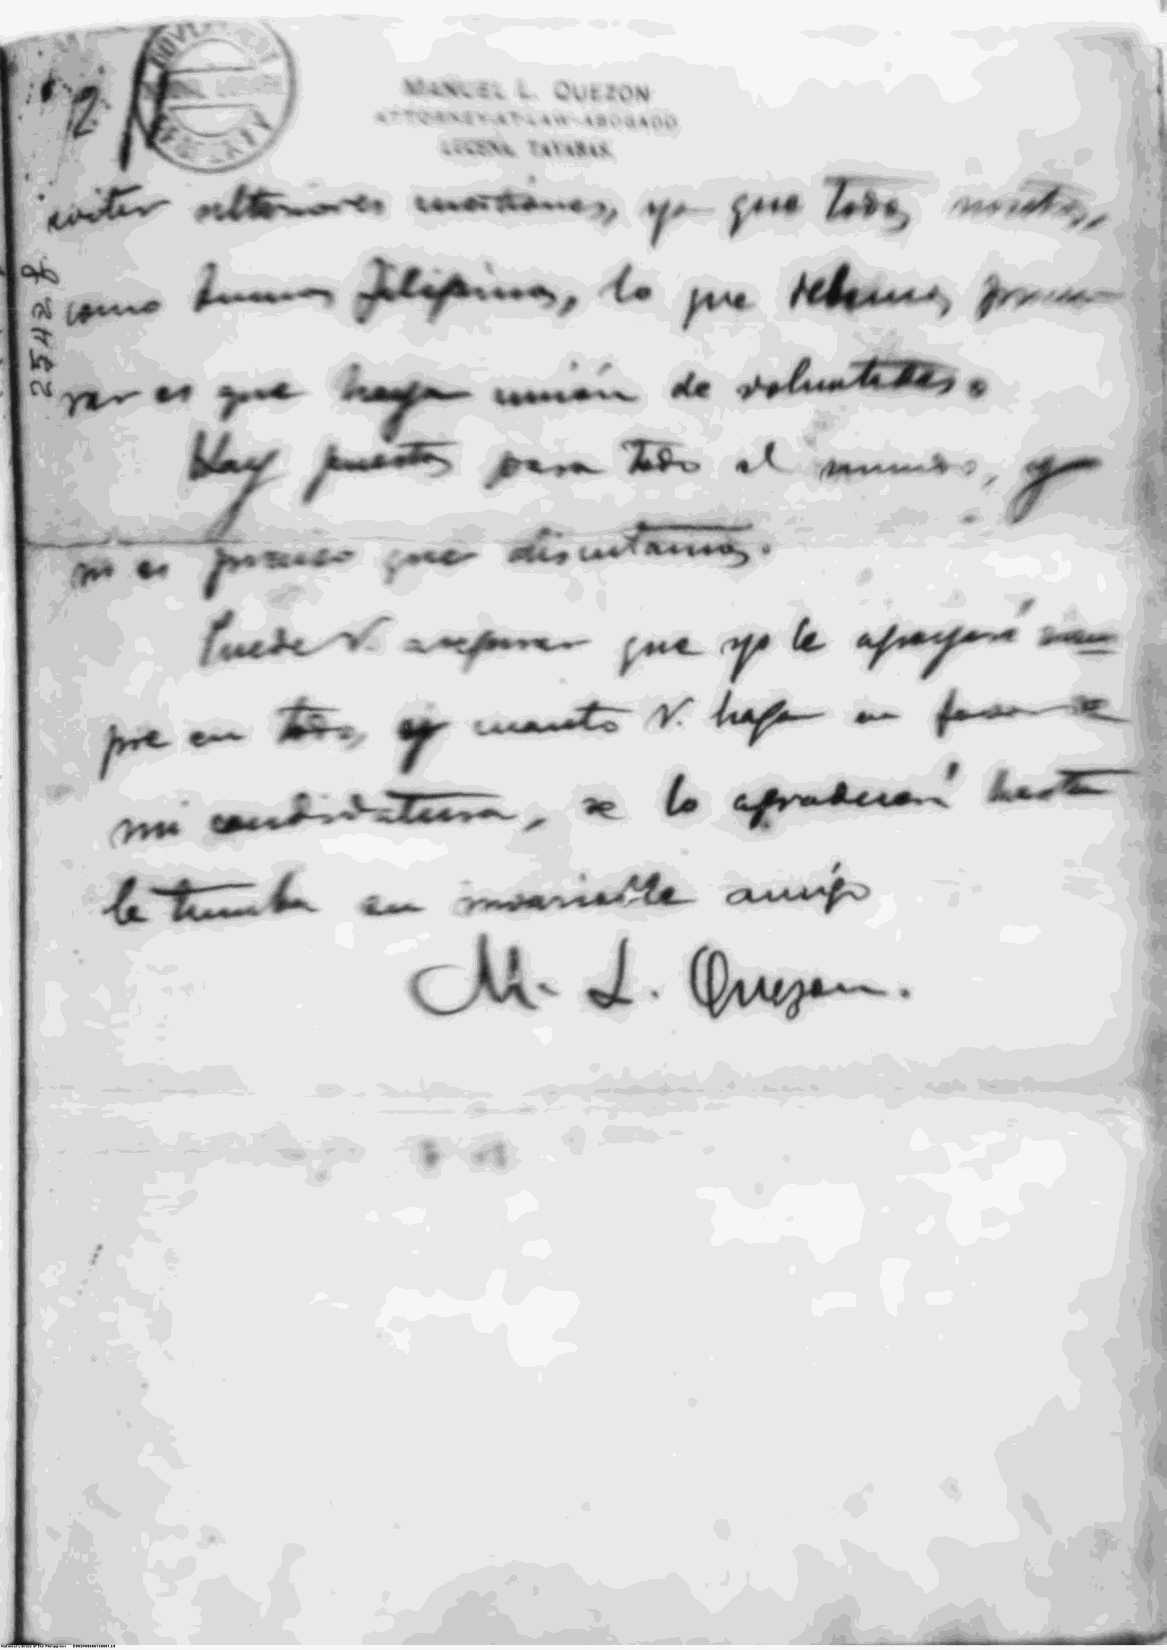 2
MANUEL L. QUEZON
ATTORNEY-AT-LAW-ABOGADO
LUCENA, TAYABAS
25428
evitar ulteriores cuestiones, ya que todos nosotros,
como buenos filipinos, lo que debemos procu-
rar es que haya unión de voluntades.
Hay puestos para todo el mundo, y
no es preciso que discutamos.
Puede V. asegurar que yo le apoyaré siem
pre en todo, y cuanto V. haga en favor de
mi candidatura, se lo agradecerá hasta
la tumba su invariable amigo
M. L. Quezon.